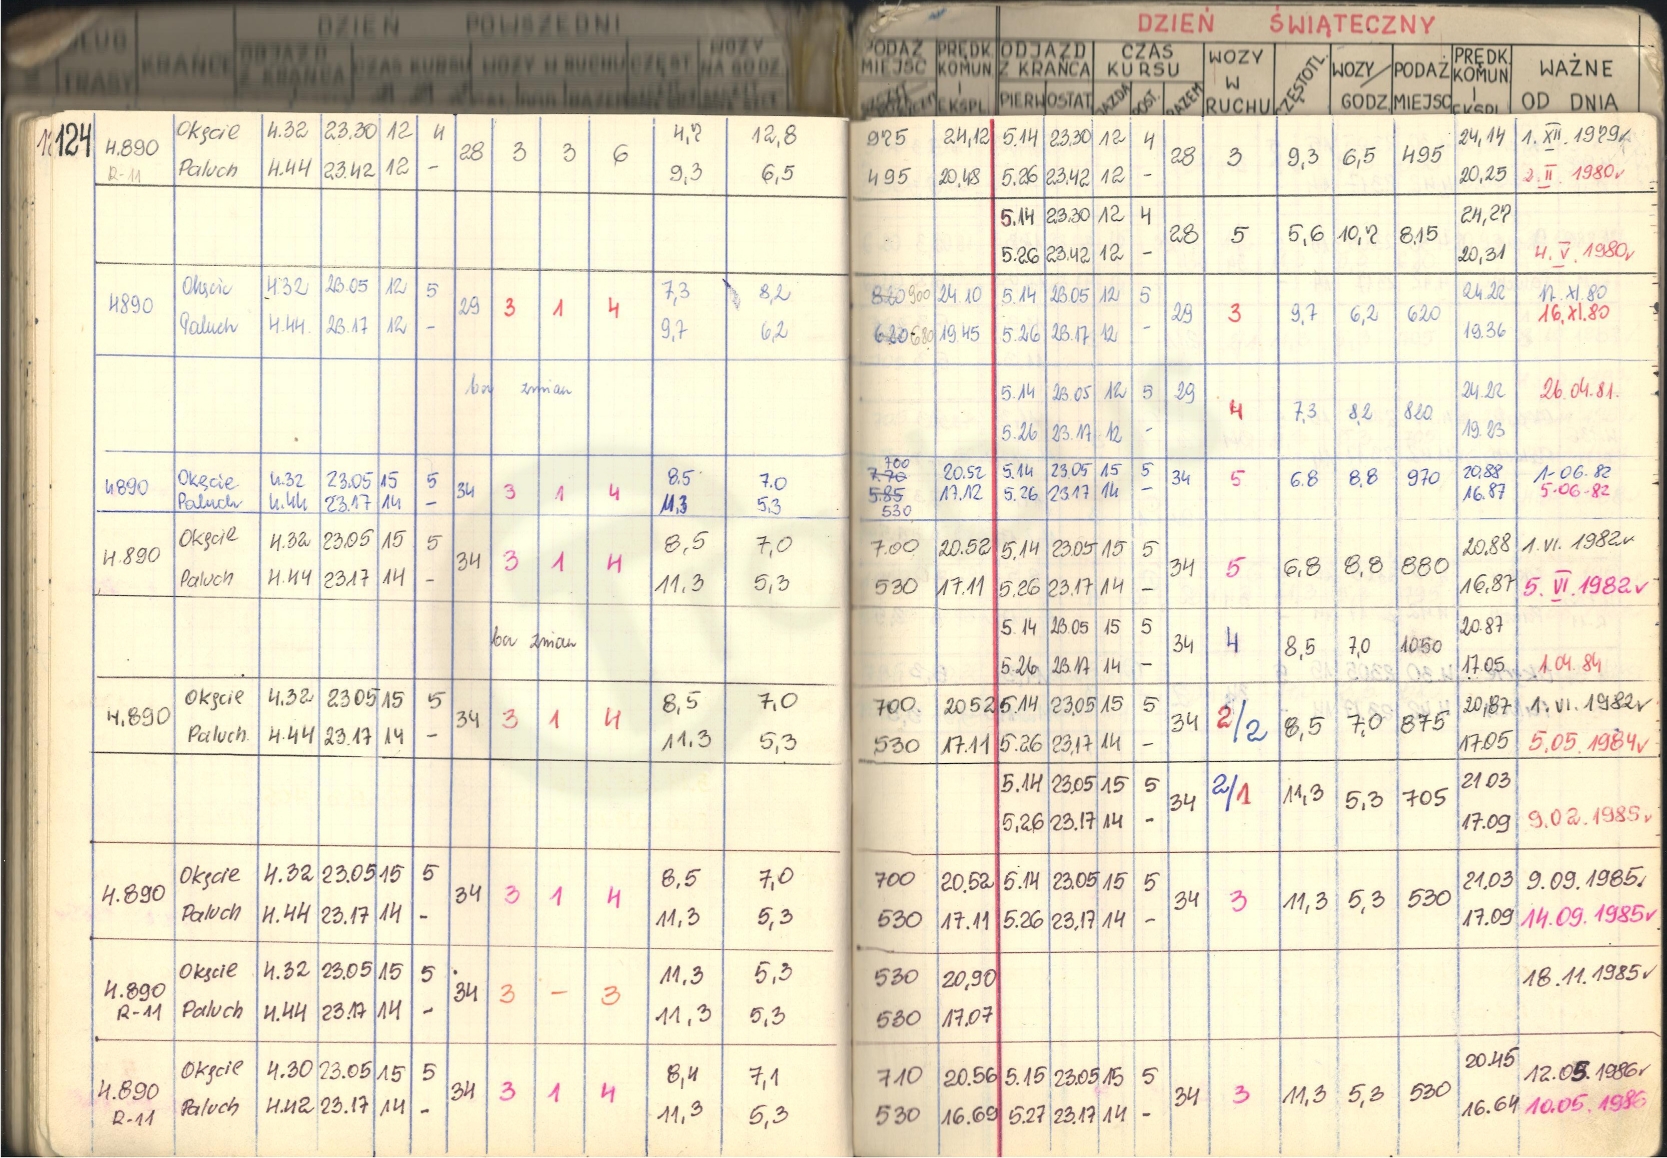 DZIEŃ POWSZEDNI
DŁUG TRASY KRAŃCE ODJAZD Z KRAŃCA CZAS KURSU WOZY W RUCHU CZĘST. WOZY NA GODZ
DZIEŃ ŚWIĄTECZNY
PODAŻ MIEJSC PRĘDK. KOMUN. I EKSPL. ODJAZD Z KRAŃCA CZAS KURSU WOZY W RUCHU CZĘSTOTL. WOZY/GODZ. PODAŻ MIEJSC PRĘDK. KOMUN. I EKSPL. WAŻNE OD DNIA
PIERW OSTAT. JAZDA POST. RAZEM
124
4.890 Okęcie 4.32 23.30 12 4 28 3 3 6 4,7 12,8 975 24,12 5.14 23.30 12 4 28 3 9,3 6,5 495 24,14 1. XII. 1979r
R-11 Paluch 4.44 23.42 12 - 9,3 6,5 495 20,48 5.26 23.42 12 - 20,25 2. II. 1980r
5.14 23.30 12 4 28 5 5,6 10,7 815 24,27
5.26 23.42 12 - 20,31 4. V. 1980r
4890 Okęcie 4.32 23.05 12 5 29 3 1 4 7,3 8,2 820 900 24.10 5.14 23.05 12 5 29 3 9,7 6,2 620 24.22 17. XI.80
16.XI.80
Paluch 4.44. 23.17 12 - 9,7 6,2 620 680 19.45 5.26 23.17 12 - 19.36
bez zmian 5.14 23.05 12 5 29 4 7,3 8,2 820 24.22 26.04.81.
5.26 23.17 12 - 19.23
700
4890 Okęcie 4.32 23.05 15 5 34 3 1 4 8.5 7.0 7.70 20.52 5.14 23.05 15 5 34 5 6.8 8,8 970 20.88 1-06.82
Paluch 4.44 23.17 14 - 11.3 5.3 585 17.12 5.26 23.17 14 - 16.87 5-06-82
530
4.890 Okęcie 4.32 23.05 15 5 34 3 1 4 8,5 7,0 700 20.52 5.14 23.05 15 5 34 5 6,8 8,8 880 20,88 1.VI. 1982r
Paluch 4.44 23.17 14 - 11,3 5,3 530 17.11 5.26 23.17 14 - 16,87 5. VI. 1982r
bez zmian 5.14 23.05 15 5 34 4 8,5 7,0 1050 20.87
5.26 23.17 14 - 17.05 1.04.84
4.890 Okęcie 4.32 23.05 15 5 34 3 1 4 8,5 7,0 700. 20.52 5.14 23.05 15 5 34 2/2 8,5 7,0 875 20,87 1.VI. 1982r
Paluch 4.44 23.17 14 - 11,3 5,3 530 17.11 5.26 23,17 14 - 17.05 5.05.1984r
5.14 23.05 15 5 34 2/1 11,3 5,3 705 21.03
5,26 23.17 14 - 17.09 9.02.1985r
4.890 Okęcie 4.32 23.05 15 5 34 3 1 4 8,5 7,0 700 20.52 5.14 23.05 15 5 34 3 11,3 5,3 530 21.03 9.09.1985r
Paluch 4.44 23.17 14 - 11,3 5,3 530 17.11 5.26 23,17 14 - 17.09 14.09.1985r
4.890 Okęcie 4.32 23.05 15 5 34 3 - 3 11,3 5,3 530 20,90 18.11.1985r
R-11 Paluch 4.44 23.17 14 - 11,3 5,3 530 17.07
4.890 Okęcie 4.30 23.05 15 5 34 3 1 4 8,4 7,1 710 20.56 5.15 23.05 15 5 34 3 11,3 5,3 530 20.45 12.05.1986r
R-11 Paluch 4.42 23.17 14 - 11,3 5,3 530 16.69 5.27 23.17 14 - 16.64 10.05.1986